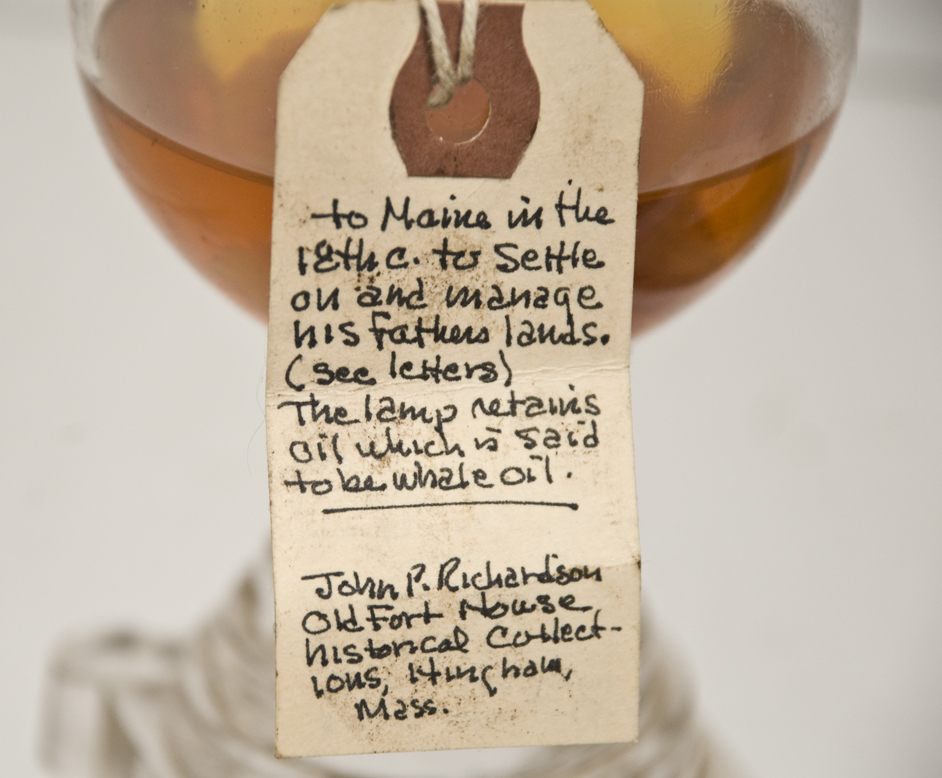 to Maine in the
18th c. to Settle
on and manage
his fathers lands.
(see letters)
The lamp retains
oil which is said
to be whale oil.
John P. Richardson
Old Fort House
historical Collect-
ions, Hingham,
Mass.